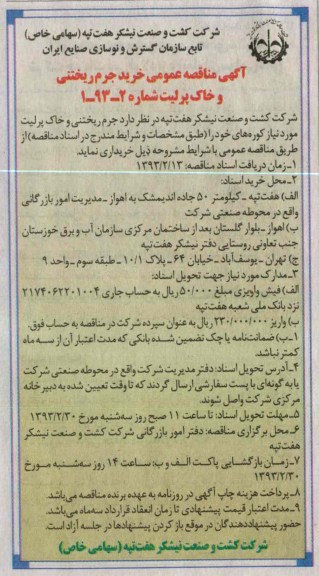 شرکت کشت و صنعت نیشکر هفت‌تپه (سهامی خاص)
تابع سازمان گسترش و نوسازی صنایع ایران
آگهی مناقصه عمومی خرید جرم ریختنی
و خاک پرلیت شماره ۲-۹۳-۱
شرکت کشت و صنعت نیشکر هفت‌تپه در نظر دارد جرم ریختنی و خاک پرلیت
مورد نیاز کوره‌های خود را (طبق مشخصات و شرایط مندرج در اسناد مناقصه) از
طریق مناقصه عمومی با شرایط مشروحه ذیل خریداری نماید.
۱- زمان دریافت اسناد مناقصه: ۱۳۹۳/۲/۱۳
۲- محل خرید اسناد:
الف) هفت‌تپه - کیلومتر ۵۰ جاده اندیمشک به اهواز - مدیریت امور بازرگانی
واقع در محوطه صنعتی شرکت
ب) اهواز - بلوار گلستان بعد از ساختمان مرکزی سازمان آب و برق خوزستان
جنب تعاونی روستایی دفتر نیشکر هفت‌تپه
ج) تهران - یوسف‌آباد - خیابان ۶۴ - پلاک ۱۰/۱ - طبقه سوم - واحد ۹
۳- مدارک مورد نیاز جهت تحویل اسناد:
الف) فیش واریزی مبلغ ۵۰/۰۰۰ ریال به حساب جاری ۲۱۷۴۰۶۲۲۰۱۰۰۴
نزد بانک ملی شعبه هفت‌تپه
ب) واریز ۲۳۰/۰۰۰/۰۰۰ ریال به عنوان سپرده شرکت در مناقصه به حساب فوق.
۱-ب) ضمانت‌نامه یا چک تضمین شده بانکی که مدت اعتبار آن از سه ماه
کمتر نباشد.
۴- آدرس تحویل اسناد: دفتر مدیریت شرکت واقع در محوطه صنعتی شرکت
یا به گونه‌ای با پست سفارشی ارسال گردند که تا وقت تعیین شده به دبیرخانه
مرکزی شرکت واصل شوند.
۵- مهلت تحویل اسناد: تا ساعت ۱۱ صبح روز سه‌شنبه مورخ ۱۳۹۳/۲/۳۰
۶- محل برگزاری مناقصه: دفتر امور بازرگانی شرکت کشت و صنعت نیشکر
هفت‌تپه
۷- زمان بازگشایی پاکت الف و ب: ساعت ۱۴ روز سه‌شنبه مورخ
۱۳۹۳/۲/۳۰
۸- پرداخت هزینه چاپ آگهی در روزنامه به عهده برنده مناقصه می‌باشد.
۹- مدت اعتبار قیمت پیشنهادی تا زمان انعقاد قرارداد سه ماه می‌باشد.
حضور پیشنهاددهندگان در موقع باز کردن پیشنهادها در جلسه آزاد است.
شرکت کشت و صنعت نیشکر هفت‌تپه (سهامی خاص)